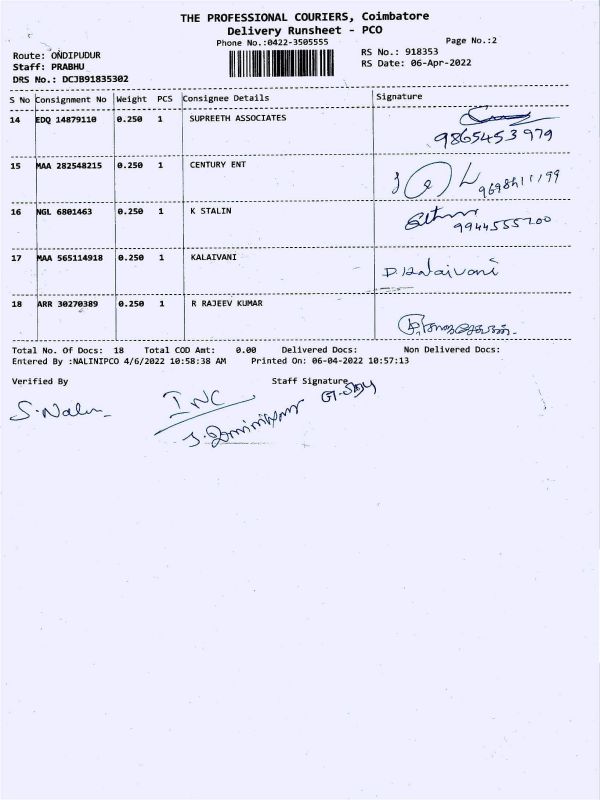 THE PROFESSIONAL COURIERS, Coimbatore
Delivery Runsheet - PCO
Phone No.:0422-3505555
Page No.:2
Route: ONDIPUDUR
RS No.: 918353
Staff: PRABHU
RS Date: 06-Apr-2022
DRS No.: DCJB91835302
S No Consignment No Weight PCS Consignee Details Signature
14 EDQ 14879110 0.250 1 SUPREETH ASSOCIATES
9865453979
15 MAA 282548215 0.250 1 CENTURY ENT
16 NGL 6801463 0.250 1 K STALIN
9944555200
17 MAA 565114918 0.250 1 KALAIVANI
D. Kalaivani
18 ARR 30270389 0.250 1 R RAJEEV KUMAR
Total No. Of Docs: 18 Total COD Amt: 0.00 Delivered Docs: Non Delivered Docs:
Entered By :NALINIPCO 4/6/2022 10:58:38 AM Printed On: 06-04-2022 10:57:13
Verified By Staff Signature
S. Nalin
INC